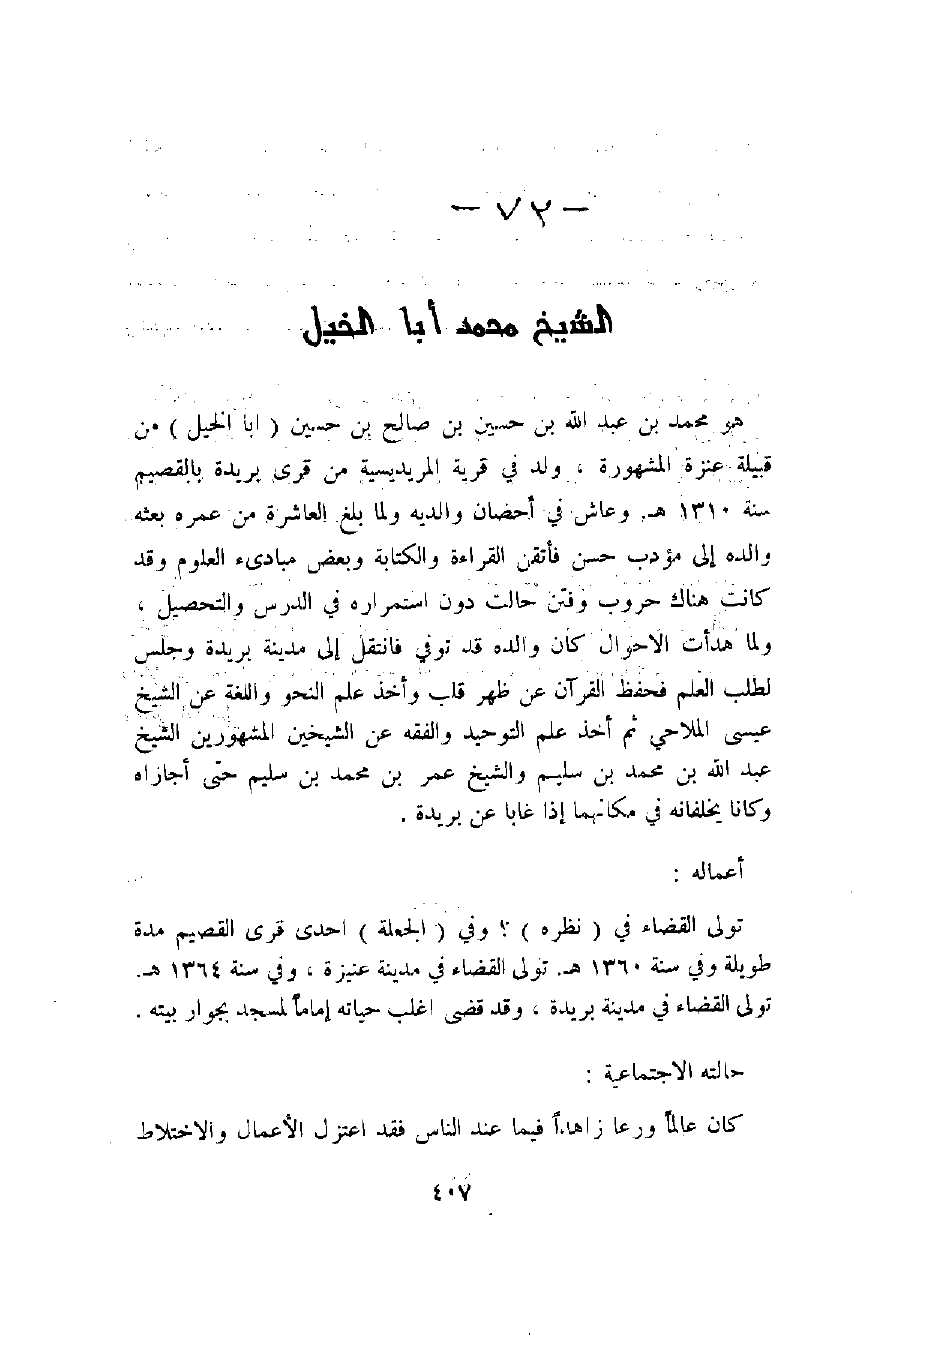 - ٧٢ -
الشيخ محمد أبا الخيل
هو محمد بن عبد الله بن حسين بن صالح بن حسين ( ابا الخيل ) من
قبيلة عنزة المشهورة ، ولد في قرية المريديسية من قرى بريدة بالقصيم
سنة ١٣١٠ هـ. وعاش في أحضان والديه ولما بلغ العاشرة من عمره بعثه
والده إلى مؤدب حسن فأتقن القراءة والكتابة وبعض مبادىء العلوم وقد
كانت هناك حروب وفتن حالت دون استمراره في الدرس والتحصيل ،
ولما هدأت الاحوال كان والده قد توفي فانتقل إلى مدينة بريدة وجلس
لطلب العلم فحفظ القرآن عن ظهر قلب وأخذ علم النحو واللغة عن الشيخ
عيسى الملاحي ثم أخذ علم التوحيد والفقه عن الشيخين المشهورين الشيخ
عبد الله بن محمد بن سليم والشيخ عمر بن محمد بن سليم حتى أجازاه
وكانا يخلفانه في مكانهما إذا غابا عن بريدة .
أعماله :
تولى القضاء في ( نظره ) ؟ وفي ( الجعلة ) احدى قرى القصيم مدة
طويلة وفي سنة ١٣٦٠ هـ. تولى القضاء في مدينة عنيزة ، وفي سنة ١٣٦٤ هـ.
تولى القضاء في مدينة بريدة ، وقد قضى اغلب حياته إماماً لمسجد بجوار بيته .
حالته الاجتماعية :
كان عالماً ورعا زاهداً فيما عند الناس فقد اعتزل الأعمال والاختلاط
٤٠٧